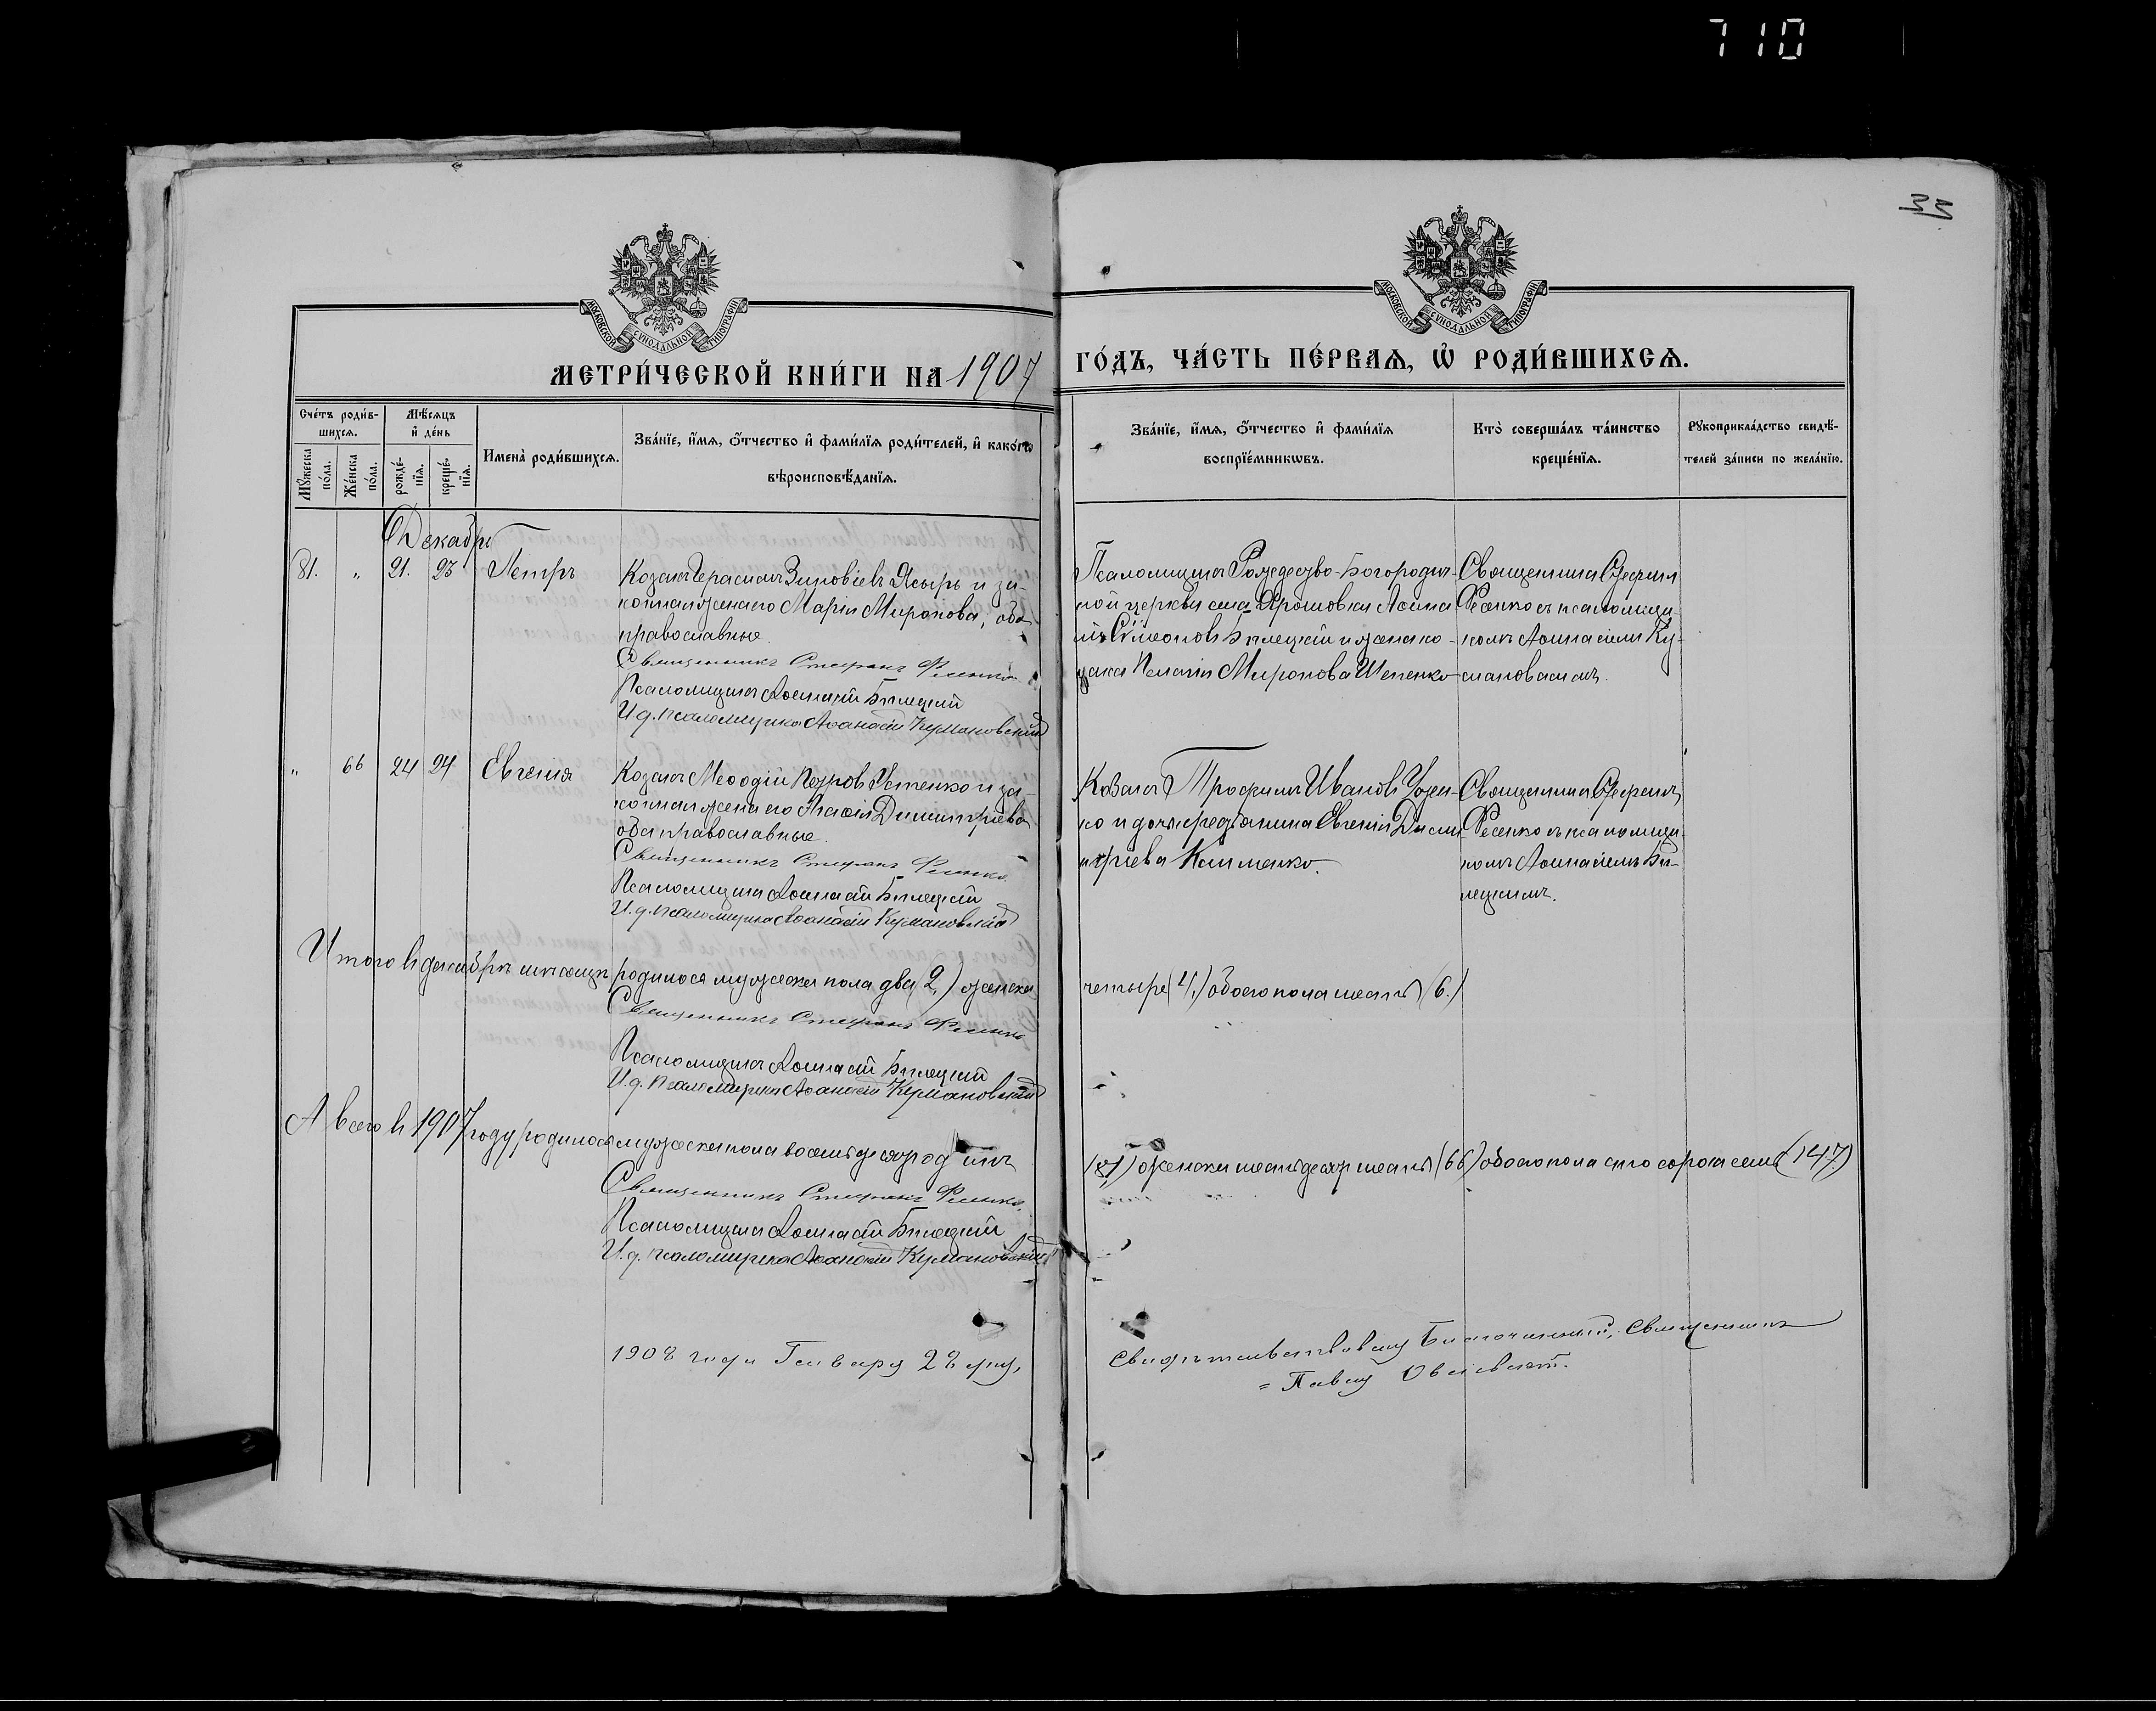 710
33
МОСКОВСКОЙ СУНОДАЛЬНОЙ ТИПОГРАФІИ
МОСКОВСКОЙ СУНОДАЛЬНОЙ ТИПОГРАФІИ
МЕТРИ́ЧЕСКОЙ КНИ́ГИ НА 1907 ГО́ДЪ, ЧА́СТЬ ПЕ́РВАѦ, Ѡ҆ РОДИ́ВШИХСѦ.
Сче́тъ роди́в-
шихсѧ.
Мꙋ́жеска по́ла.
Же́нска по́ла.
Мѣ́сѧцъ
и҆ де́нь
рожде́-
нїѧ.
креще́-
нїѧ.
Имена̀ роди́вшихсѧ.
Зва́нїе, и҆́мѧ, ѻ҆́тчество и҆ фами́лїѧ роди́телей, и҆ како́гѡ
вѣроисповѣ́данїѧ.
Зва́нїе, и҆́мѧ, ѻ҆́тчество и҆ фами́лїѧ
воспрїе́мникѡвъ.
Кто̀ соверша́лъ та́инство
креще́нїѧ.
Рꙋкоприкла́дство свидѣ́-
телей за́писи по жела́нїю.
Декабрь
81. " 21. 23 Петръ
Козакъ Герасимъ Зиновіевъ Ясырь и за-
конная жена его Марія Миронова, оба
православные.
Священникъ Стефанъ Фесенко
Псаломщикъ Аѳанасій Билецкій
И. д. псаломщика Аѳанасій Кумановскій
Псаломщикъ Рождество-Богородич-
ной церкви села Ярошовки Аѳана-
сій Сѵмеоновъ Билецкій и жена ко-
зака Пелагія Миронова Шепенко
Священникъ Стефанъ
Фесенко съ псаломщи-
комъ Аѳанасіемъ Ку-
мановскимъ.
" 66 24 24 Евгенія
Козакъ Меѳодій Петровъ Устенко и за-
конная жена его Димитріева
оба православные.
Священникъ Стефанъ Фесенко.
Псаломщикъ Аѳанасій Билецкій
И. д. псаломщика Аѳанасій Кумановскій
Козакъ Трофимъ Ивановъ
но и дочь Евгенія Дими-
тріева Клименко.
Священникъ Стефанъ
Фесенко съ псаломщи-
комъ Аѳанасіемъ Би-
лецкимъ.
Итого въ декабрѣ мѣсяцѣ родилося мужеска пола два (2,) женска четыре (4,) обоего пола шесть (6.)
Священникъ Стефанъ Фесенко
Псаломщикъ Аѳанасій Билецкій
И. д. псаломщика Аѳанасій Кумановскій
А всего въ 1907 году родилося мужеска пола восемьдесятъ одинъ (81,) женска шестьдесятъ шесть (66) обоего пола сто сорокъ семь (147)
Священникъ Стефанъ Фесенко.
Псаломщикъ Аѳанасій Билецкій
И. д. псаломщика Аѳанасій Кумановскій
1908 года Генваря 28 дня,
Свидѣтельствовалъ Благочинный, Священникъ
= Павелъ